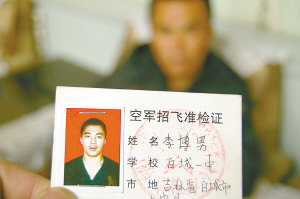 空军招飞准检证
姓名 李博男
学校 白城一中
市地 吉林省白城市